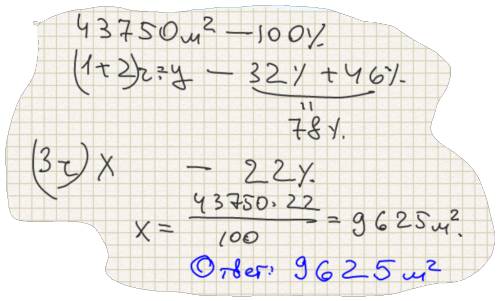 43750 м² — 100%
(1+2)ч = y — 32% + 46%
=
78%.
(3ч) x — 22%.
x = 43750 · 22 / 100 = 9625 м².
Ответ: 9625 м²